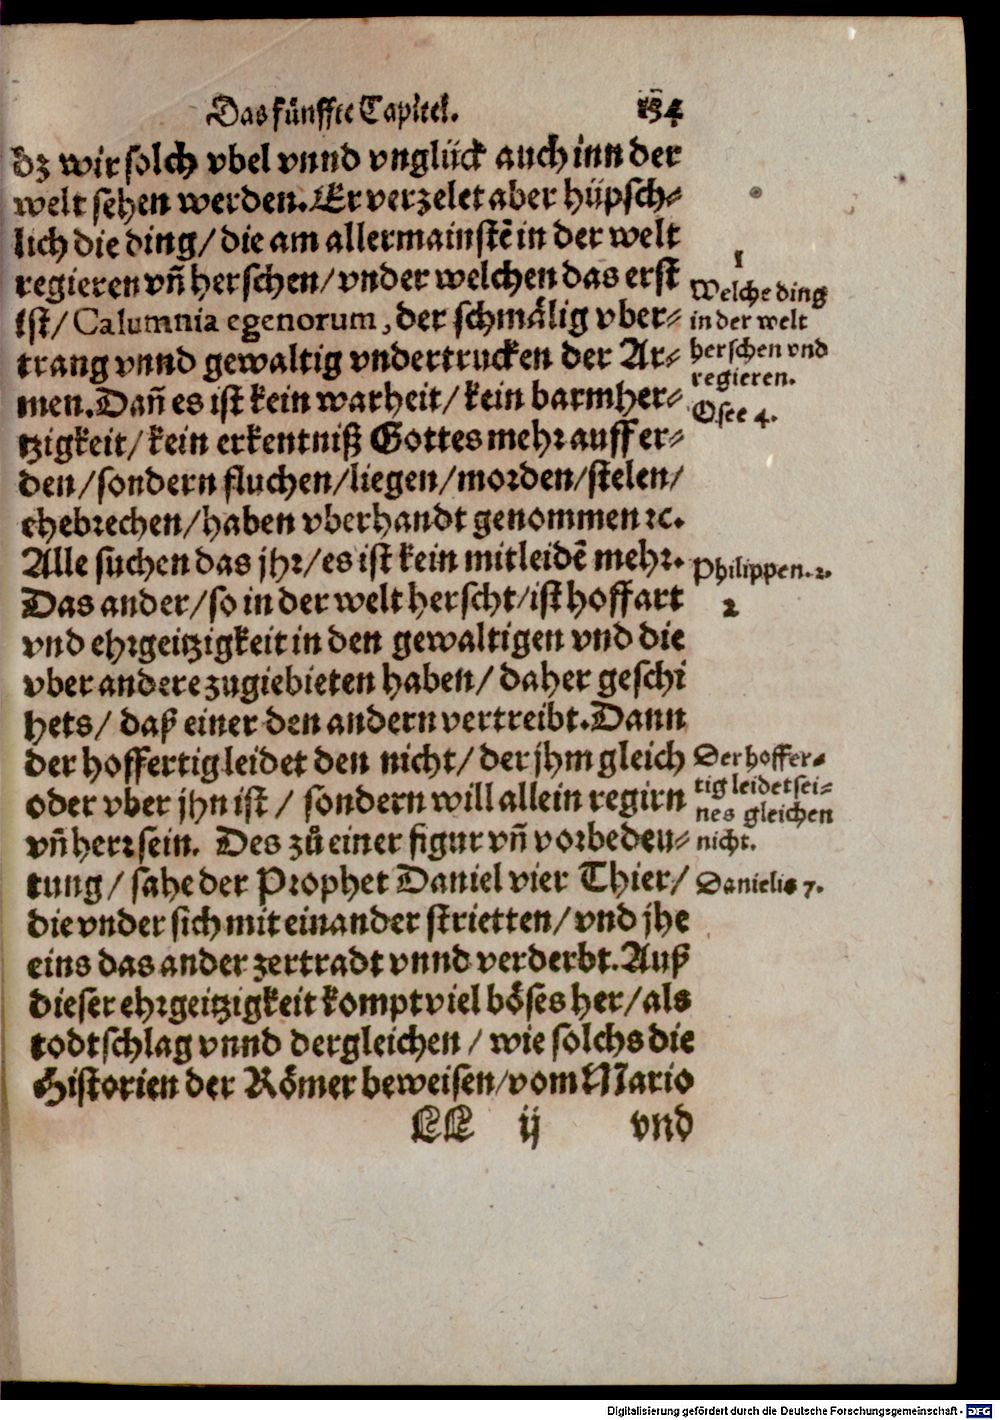 Das fünffte Capitel. 134
dz wir solch vbel vnnd vnglück auch inn der
welt sehen werden. Er verzelet aber hüpsch⸗
lich die ding/ die am allermainstē in der welt
regieren vñ herschen/ vnder welchen das erst
ist/ Calumnia egenorum, der schmålig vber⸗
trang vnnd gewaltig vndertrucken der Ar⸗
men. Dañ es ist kein warheit/ kein barmher⸗
tzigkeit/ kein erkentniß Gottes mehr auff er⸗
den/ sondern fluchen/ liegen/ morden/ stelen/
ehebrechen/ haben vberhandt genommen ꝛc.
Alle suchen das jhr/ es ist kein mitleidē mehr.
Das ander/ so in der welt herscht/ ist hoffart
vnd ehrgeitzigkeit in den gewaltigen vnd die
vber andere zugiebieten haben/ daher geschi
hets/ daß einer den andern vertreibt. Dann
der hoffertig leidet den nicht/ der jhm gleich
oder vber jhn ist/ sondern will allein regirn
vñ herr sein. Des zů einer figur vñ vorbedeu⸗
tung/ sahe der Prophet Daniel vier Thier/
die vnder sich mit einander strietten/ vnd jhe
eins das ander zertradt vnnd verderbt. Auß
dieser ehrgeitzigkeit kompt viel böses her/ als
todtschlag vnnd dergleichen/ wie solchs die
Historien der Römer beweisen/ vom Mario
LL ij vnd
1
Welche ding
in der welt
herschen vnd
regieren.
Osee 4.
Philippen. 2.
2
Der hoffer⸗
tig leidet sei⸗
nes gleichen
nicht.
Danielis 7.
Digitalisierung gefördert durch die Deutsche Forschungsgemeinschaft - DFG